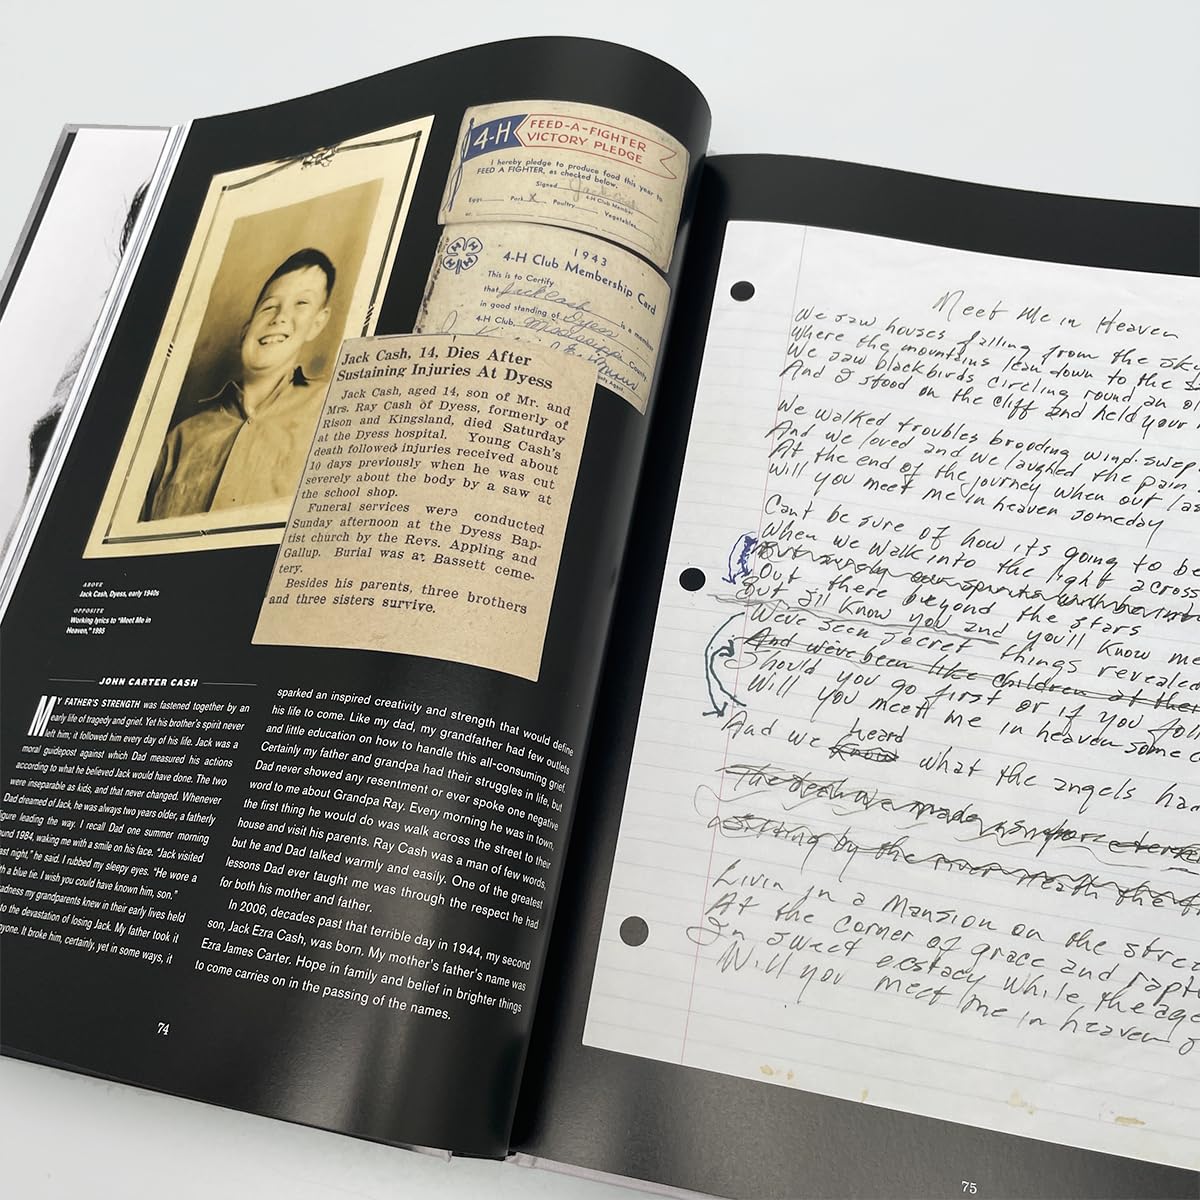 4-H
FEED-A-FIGHTER
VICTORY PLEDGE
I hereby pledge to produce food this year to
FEED A FIGHTER, as checked below.
Signed
4-H Club Member
Eggs Pork x Poultry Vegetables
1943
4-H Club Membership Card
This is to Certify
that Jack Cash is a member
in good standing of Dyess
4-H Club, Mississippi County.
Jack Cash, 14, Dies After
Sustaining Injuries At Dyess
Jack Cash, aged 14, son of Mr. and
Mrs. Ray Cash of Dyess, formerly of
Rison and Kingsland, died Saturday
at the Dyess hospital. Young Cash's
death followed injuries received about
10 days previously when he was cut
severely about the body by a saw at
the school shop.
Funeral services were conducted
Sunday afternoon at the Dyess Bap-
tist church by the Revs. Appling and
Gallup. Burial was at Bassett ceme-
tery.
Besides his parents, three brothers
and three sisters survive.
ABOVE
Jack Cash, Dyess, early 1940s
OPPOSITE
Working lyrics to "Meet Me in
Heaven," 1995
JOHN CARTER CASH
MY FATHER'S STRENGTH was fastened together by an
early life of tragedy and grief. Yet his brother's spirit never
left him; it followed him every day of his life. Jack was a
moral guidepost against which Dad measured his actions
according to what he believed Jack would have done. The two
were inseparable as kids, and that never changed. Whenever
Dad dreamed of Jack, he was always two years older, a fatherly
figure leading the way. I recall Dad one summer morning
ound 1984, waking me with a smile on his face. "Jack visited
ast night," he said. I rubbed my sleepy eyes. "He wore a
h a blue tie. I wish you could have known him, son."
adness my grandparents knew in their early lives held
to the devastation of losing Jack. My father took it
yone. It broke him, certainly, yet in some ways, it
sparked an inspired creativity and strength that would define
his life to come. Like my dad, my grandfather had few outlets
and little education on how to handle this all-consuming grief.
Certainly my father and grandpa had their struggles in life, but
Dad never showed any resentment or ever spoke one negative
word to me about Grandpa Ray. Every morning he was in town,
the first thing he would do was walk across the street to their
house and visit his parents. Ray Cash was a man of few words,
but he and Dad talked warmly and easily. One of the greatest
lessons Dad ever taught me was through the respect he had
for both his mother and father.
In 2006, decades past that terrible day in 1944, my second
son, Jack Ezra Cash, was born. My mother's father's name was
Ezra James Carter. Hope in family and belief in brighter things
to come carries on in the passing of the names.
74
Meet Me in Heaven
We saw houses falling from the sky
Where the mountains lean down to the
We saw blackbirds circling round an
And I stood on the cliff and held your
We walked troubles brooding wind-swept
And we loved and we laughed the pain
At the end of the journey when our las
Will you meet me in heaven someday
Can't be sure of how it's going to be
When we walk into the light across
But surely our spirits will be
Out there beyond the stars
But I'll know you and you'll know me
We've seen secret things revealed
And we've been like children at the
Should you go first or if you foll
Will you meet me in heaven some
And we know heard what the angels
The deal we made
Sitting by the river
Livin in a Mansion on the stre
At the corner of grace and rapt
In sweet ecstacy while the age
Will you meet me in heaven
75